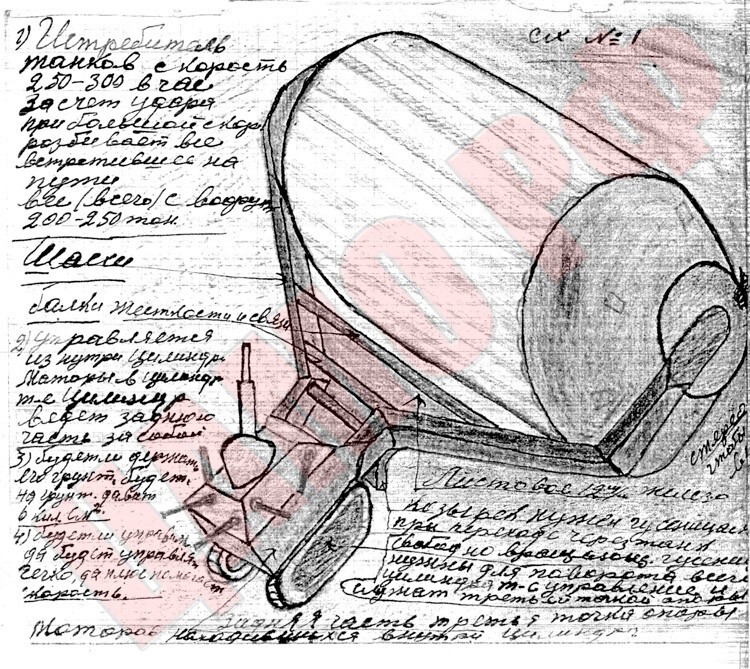 сх №1
1) Истребитель
танков скорость
250-300 в час
За счет удара
при большой скор
розбивает все
встретившее на
пути
вес (всего) с вооруж
200-250 тон.
Шасси
балки жесткости и связи
2) управляется
из нутри цилиндра
Моторы в цилинд
же цилиндр
ведет заднюю
часть за собой
3) будет ли держат
его грунт. будет.
на грунт. дават
6 кил см²
4) будет ли
да будет управля
легко, да плюс
скорость.
Листовое железо
козырек нужен гусеницам
при переходе через танк
свободно гусени
нужны для поворота всего
цилиндра т-с управление и
служат третьей точкой опоры
задняя часть третья точка опоры
Моторов находившихся внутри цилиндра
чтобы
ЦАМО РФ